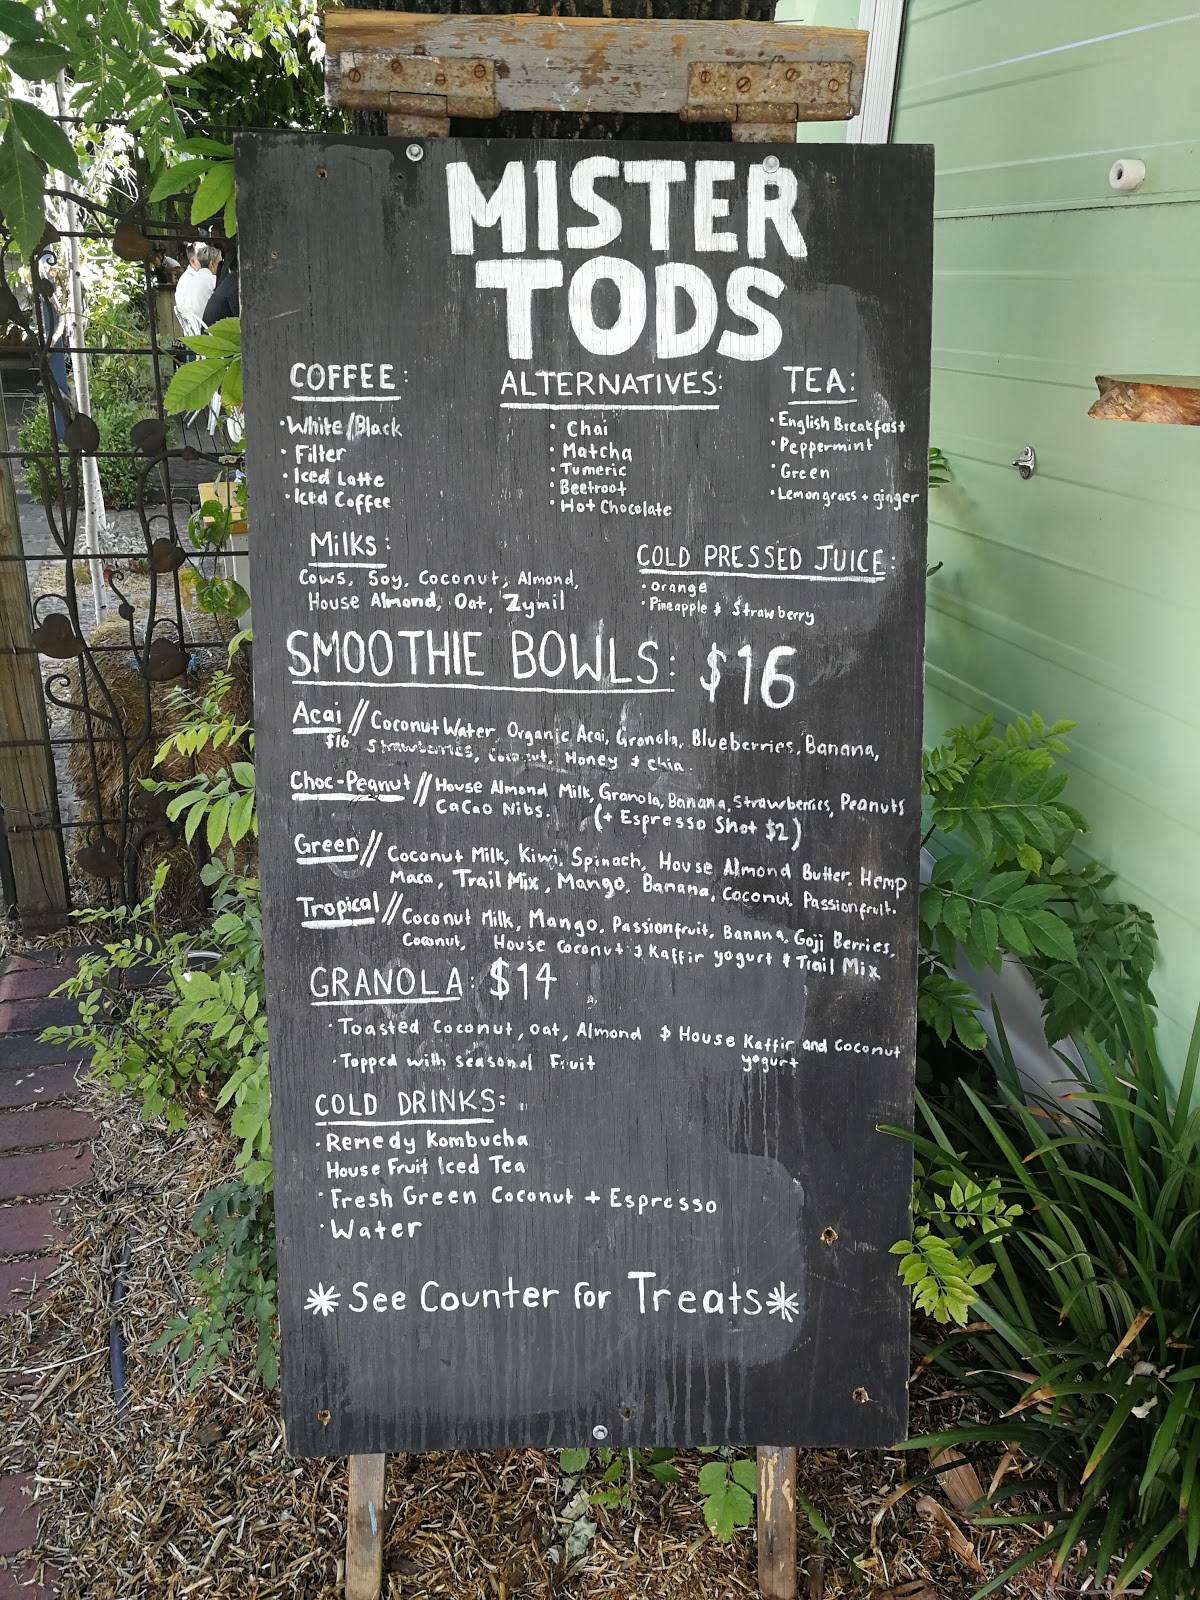 MISTER
TODS
COFFEE:
• White/Black
• Filter
• Iced Latte
• Iced Coffee
ALTERNATIVES:
• Chai
• Matcha
• Tumeric
• Beetroot
• Hot Chocolate
TEA:
• English Breakfast
• Peppermint
• Green
• Lemongrass + ginger
Milks:
Cows, Soy, Coconut, Almond,
House Almond, Oat, Zymil
COLD PRESSED JUICE:
• Orange
• Pineapple & Strawberry
SMOOTHIE BOWLS: $16
Acai // Coconut Water, Organic Acai, Granola, Blueberries, Banana,
$16 Strawberries, Coconut, Honey & Chia.
Choc-Peanut // House Almond Milk, Granola, Banana, Strawberries, Peanuts
CaCao Nibs. (+ Espresso Shot $2)
Green // Coconut Milk, Kiwi, Spinach, House Almond Butter, Hemp
Maca, Trail Mix, Mango, Banana, Coconut, Passionfruit.
Tropical // Coconut Milk, Mango, Passionfruit, Banana, Goji Berries,
Coconut, House Coconut & Kaffir yogurt & Trail Mix
GRANOLA: $14
• Toasted Coconut, oat, Almond & House Kaffir and Coconut
yogurt
• Topped with Seasonal Fruit
COLD DRINKS:
• Remedy Kombucha
House Fruit Iced Tea
• Fresh Green Coconut + Espresso
• Water
* See Counter for Treats *